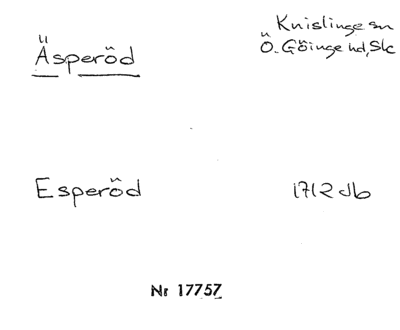 Äsperöd
Knislinge sn
Ö. Göinge hd, Sk
Esperöd
1712 Jb
Nr 17757